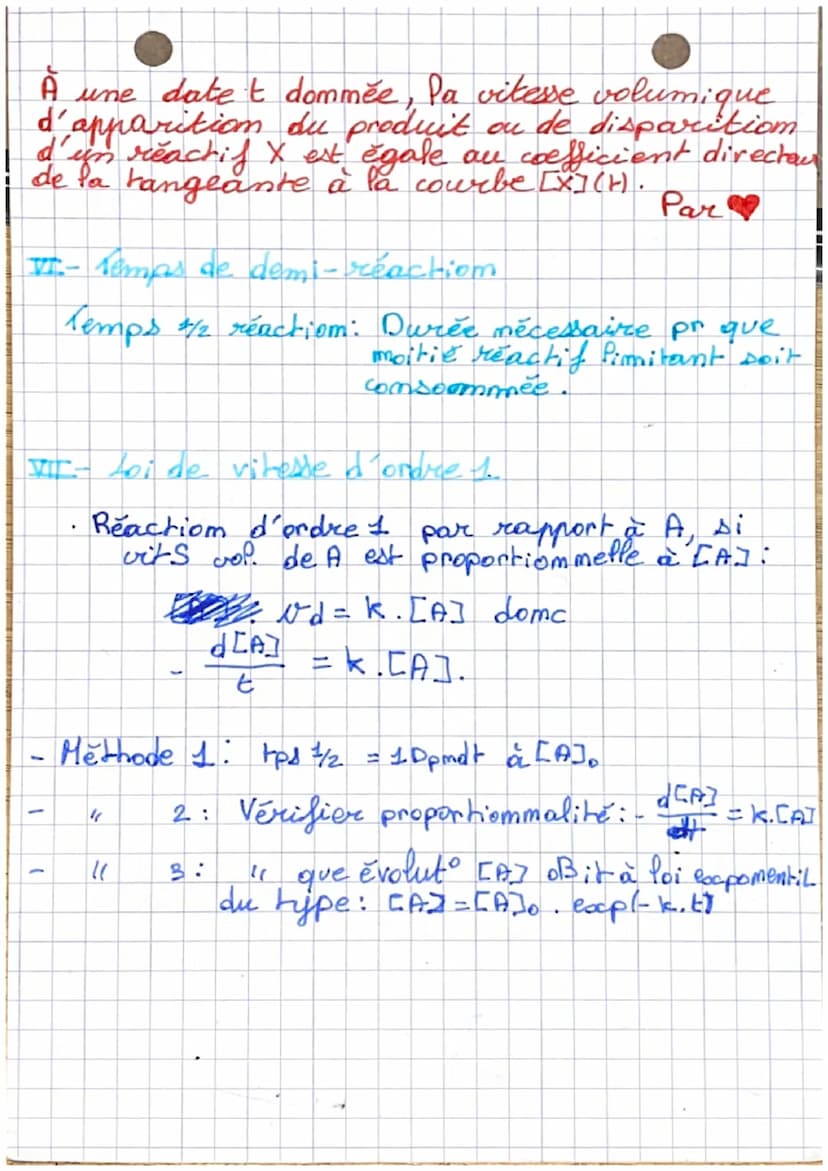 À une date t donnée, la vitesse volumique
d'apparition du produit ou de disparition
d'un réactif X est égale au coefficient directeur
de la tangeante à la courbe [X](t).
Par ♥
VI.- Temps de demi-réaction
Temps 1/2 réaction: Durée nécessaire pr que
moitié réactif limitant soit
consommée.
VII.- Loi de vitesse d'ordre 1.
· Réaction d'ordre 1 par rapport à A, si
vitS vol. de A est proportionnelle à [A]:
vd = k.[A] donc
- d[A]/t = k.[A].
- Méthode 1: tps 1/2 = 1Dpmdt à [A]₀
- " 2: Vérifier proportionnalité: - d[A]/dt = k.[A]
- " 3: " que évolut° [A] oBit à loi exponentiL
du type: [A]=[A]₀ . exp(-k.t)